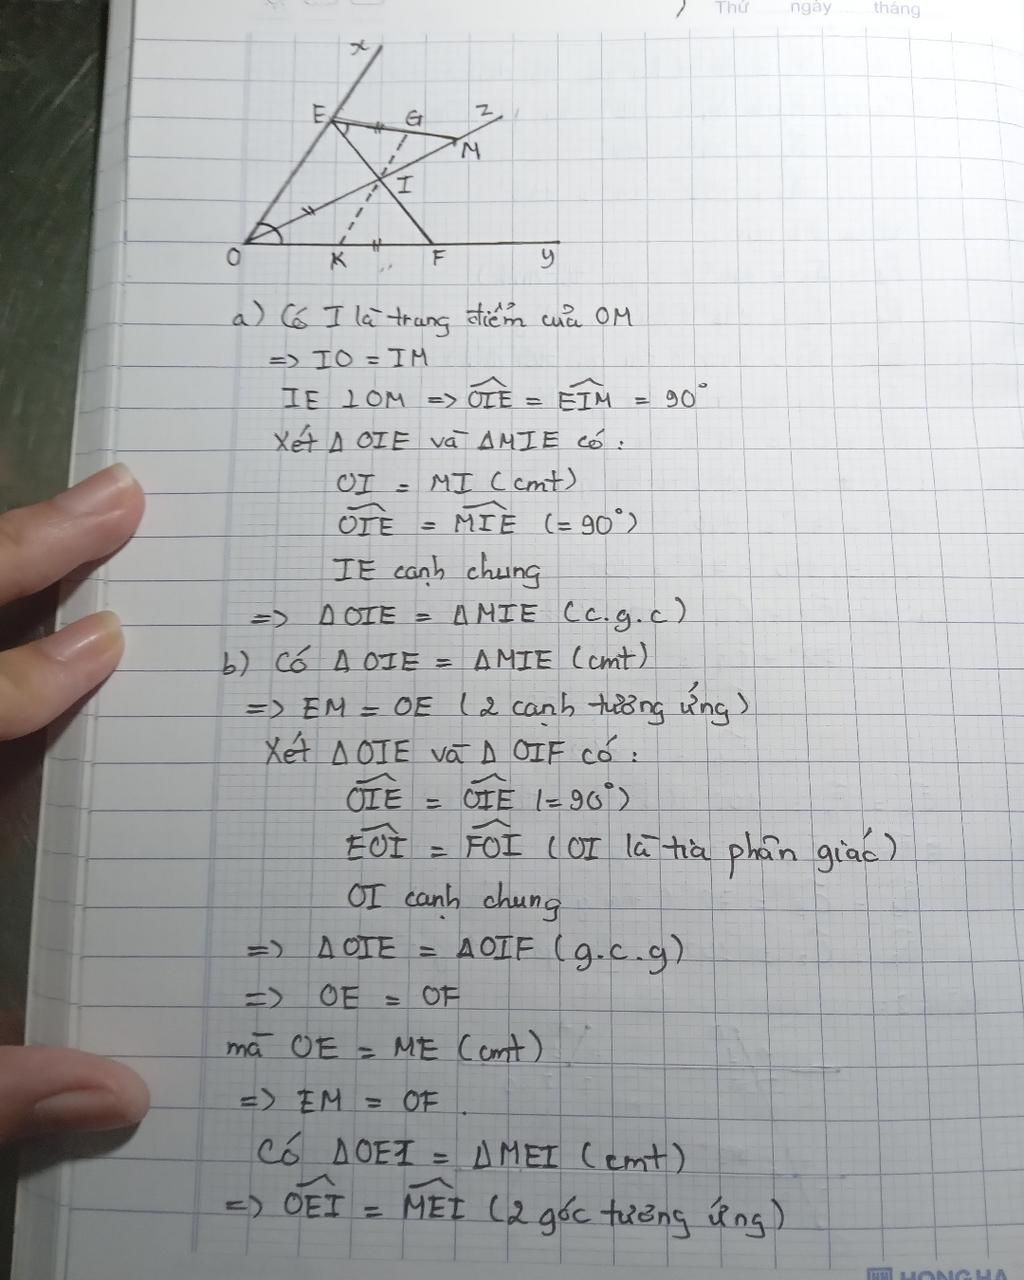 Thứ ngày tháng
x
E G z
M
I
O K F y
a) Có I là trung điểm của OM
=> IO = IM
IE ⊥ OM => OIE = EIM = 90°
Xét Δ OIE và Δ MIE có :
OI = MI (cmt)
OIE = MIE (= 90°)
IE cạnh chung
=> Δ OIE = Δ MIE (c.g.c)
b) Có Δ OIE = Δ MIE (cmt)
=> EM = OE (2 cạnh tương ứng)
Xét Δ OIE và Δ OIF có :
OIE = OIE (= 90°)
EOI = FOI (OI là tia phân giác)
OI cạnh chung
=> Δ OIE = Δ OIF (g.c.g)
=> OE = OF
mà OE = ME (cmt)
=> EM = OF .
Có Δ OEI = Δ MEI (cmt)
=> OEI = MEI (2 góc tương ứng)
HONG HA